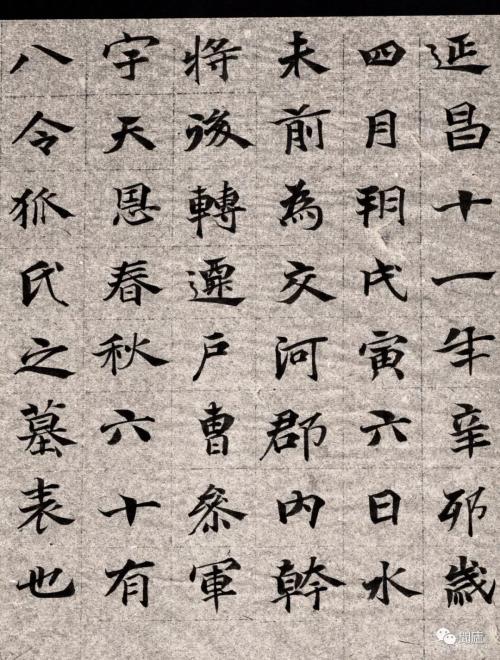 延昌十一年辛卯歲
四月朔戊寅六日水
未前為交河郡内幹
将後轉遷戶曹叅軍
字天恩春秋六十有
八令狐氏之墓表也